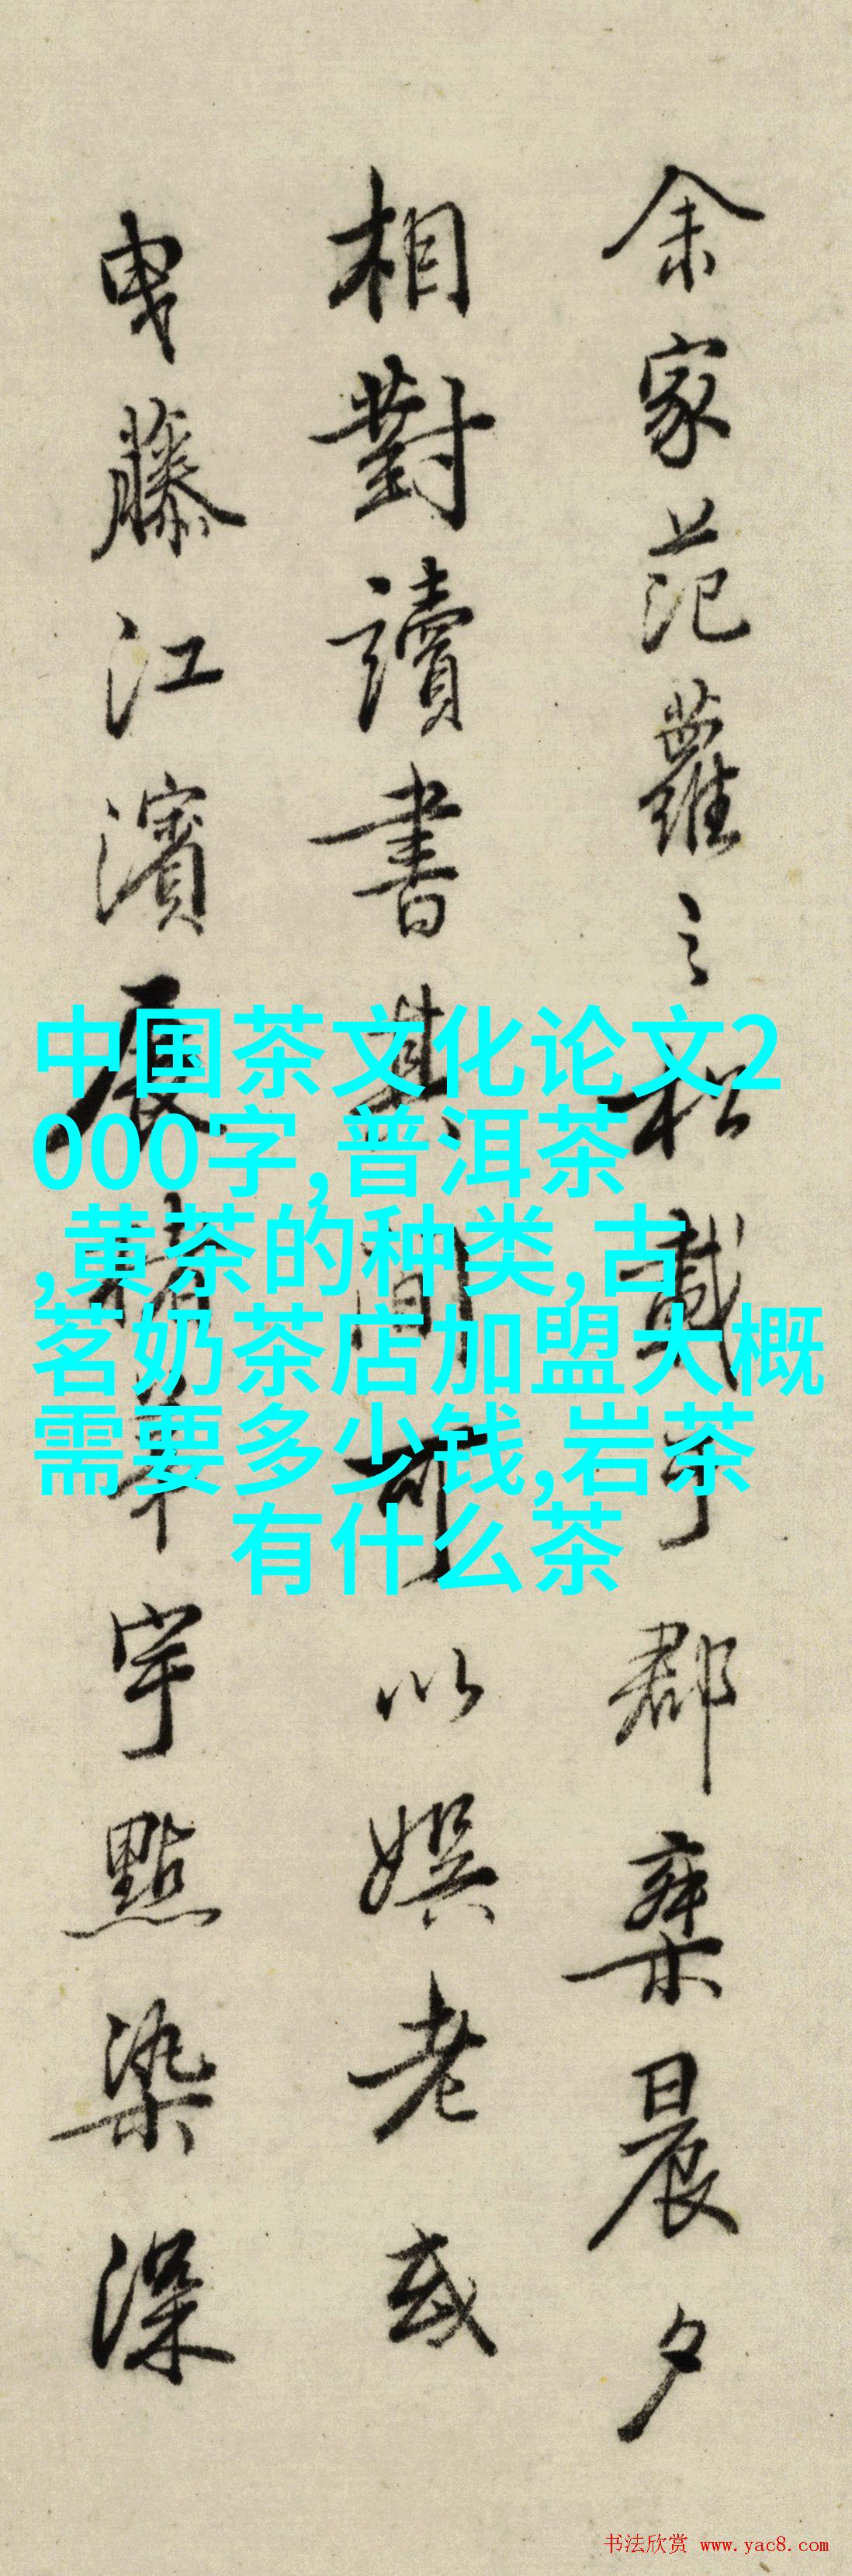 余家范蘿之松戴于郡棄晨夕
相對讀書其間可以娯老或
曳藤江濱展精草宇點染深
中国茶文化论文2
000字,普洱茶
,黄茶的种类,古
茗奶茶店加盟大概
需要多少钱,岩茶
有什么茶
书法欣赏 www.yac8.com